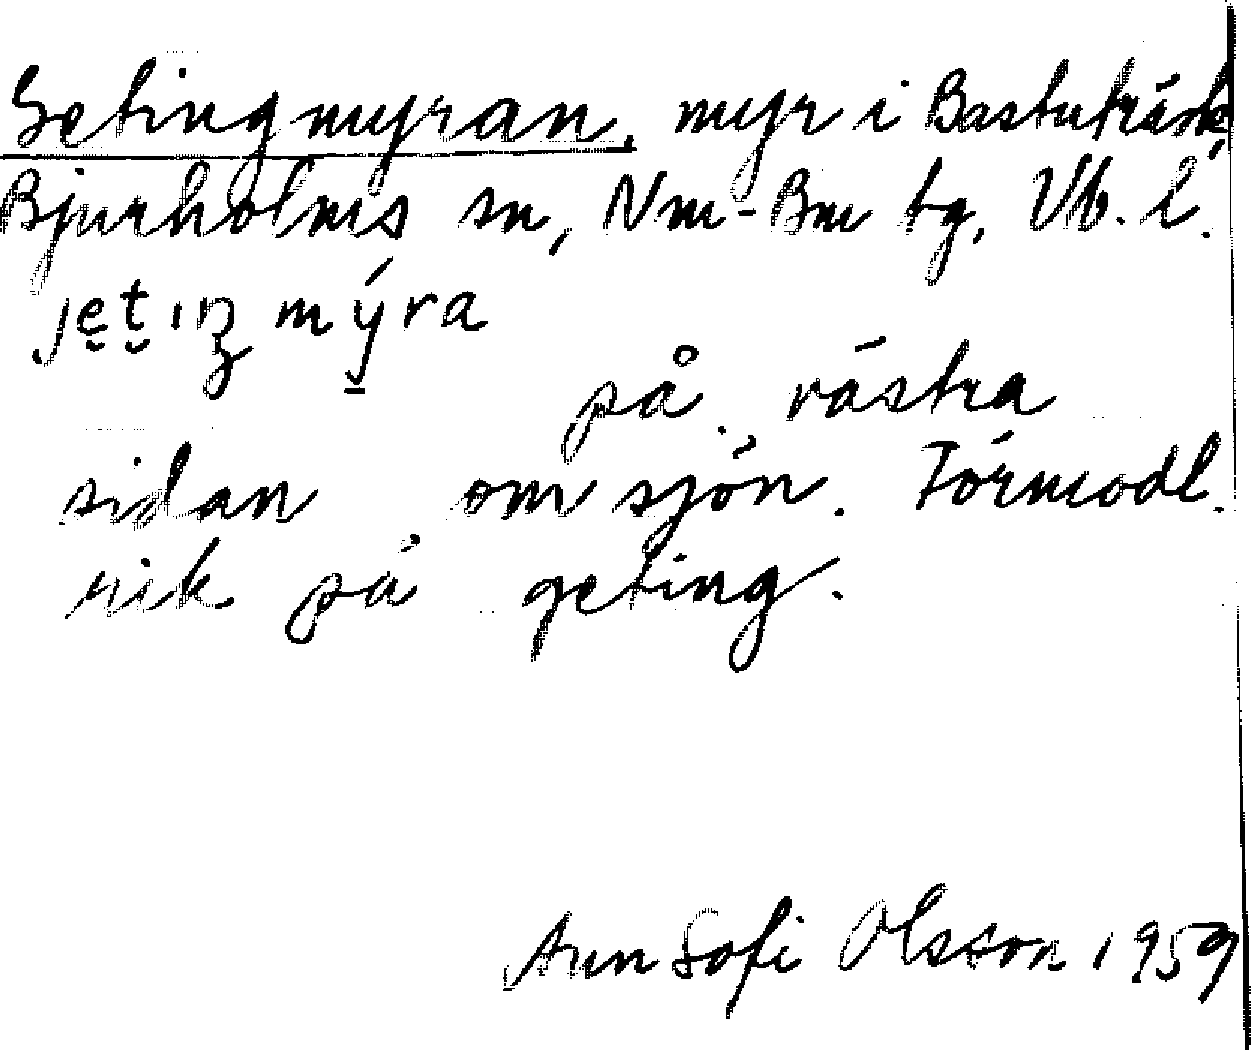 Getingmyran, myr i Bastuträsk,
Bjurholms sn, Nm-Bm tg, Vb. l.
jetiŋ mýra
på västra
sidan om sjön. Förmodl.
rik på geting.
Ann Sofi Olsson 1959